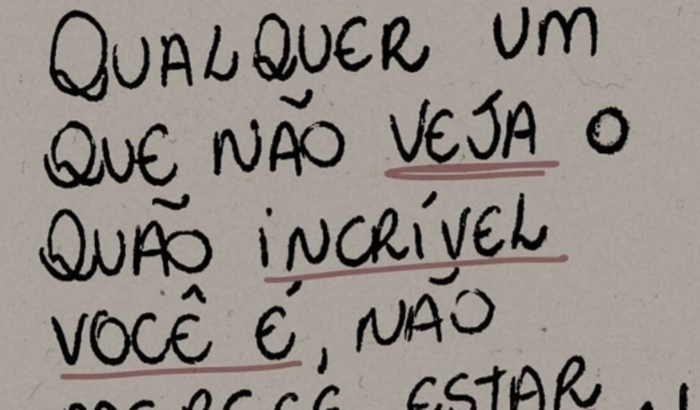 QUALQUER UM
QUE NÃO VEJA O
QUÃO INCRÍVEL
VOCÊ É, NÃO
MERECE ESTAR